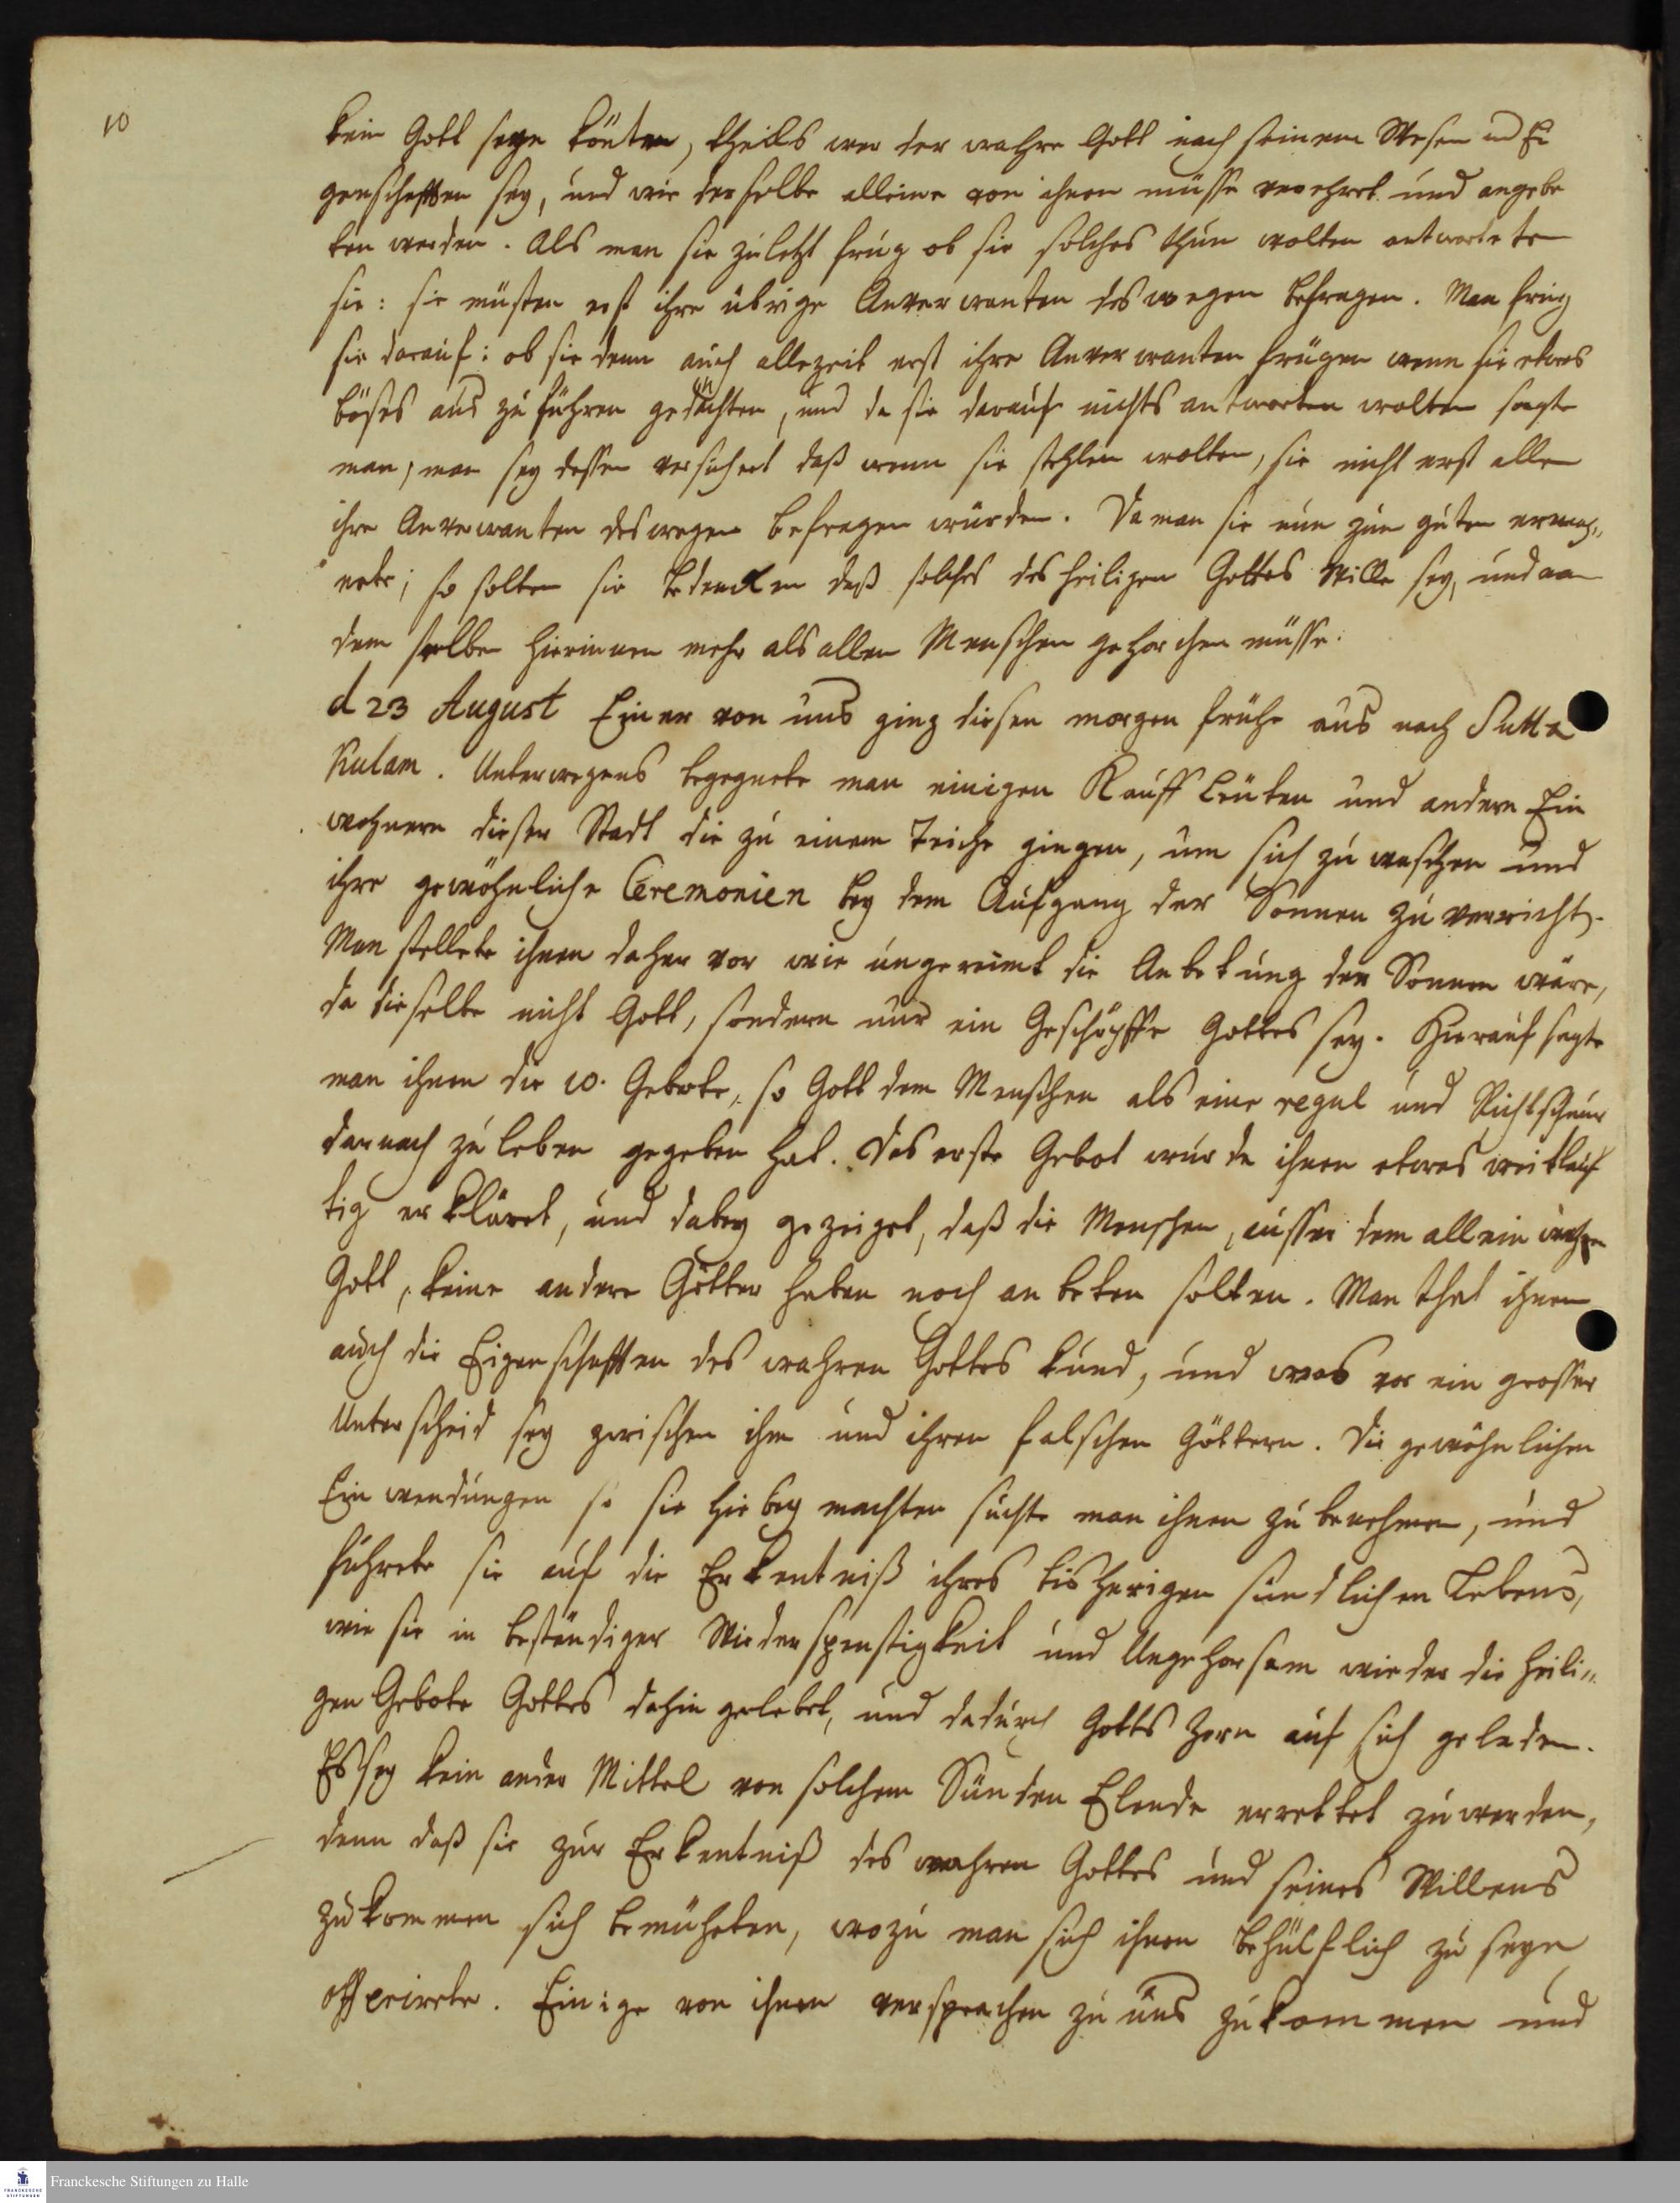 10
kein Gott seyn könten, theils wer der wahre Gott nach seinem Wesen und Ei
genschafften sey, und wie derselbe alleine von ihnen müsse verehret und angebe
ten werden. Als man sie zuletzt frug ob sie solches thun wolten antworteten
sie: sie müsten erst ihre übrige Anverwanten deswegen befragen. Man frug
sie darauf: ob sie denn auch allezeit erst ihre Anverwanten frügen wenn sie etwas
böses aus zu führen gedächten, und da sie darauf nichts antworten wolten sagte
man, man sey dessen versichert daß wenn sie stehlen wolten, sie nicht erst alle
ihre Anverwanten deswegen befragen würden. Da man sie nun zum guten ermah„
nete; so solten sie bedencken daß solches des heiligen Gottes Wille sey, und man
dem selben hierinnen mehr als allen Menschen gehorchen müsse.
d 23 August Einer von uns ging diesen morgen frühe aus nach Sutta
Kulam. Unterwegens begegnete man einigen Kauff Leuten und andern Ein
wohnern dieser Stadt die zu einem Teiche giengen, um sich zu waschen und
ihre gewöhnliche Ceremonien bey dem Aufgang der Sonnen zu verrichten.
Man stellete ihnen daher vor wie ungereimt die Anbetung der Sonnen wäre,
da dieselbe nicht Gott, sondern nur ein Geschöpffe Gottes sey. Hierauf sagte
man ihnen die 10. Gebote, so Gott dem Menschen als eine regul und Richtschnur
darnach zu leben gegeben hat. Das erste Gebot wurde ihnen etwas weitläuf
tig erkläret, und dabey gezeiget, daß die Menschen, ausser dem allein wahren
Gott, keine andere Götter haben noch anbeten solten. Man that ihnen
auch die Eigenschafften des wahren Gottes kund, und was vor ein grosser
Unterscheid sey zwischen ihm und ihren falschen Göttern. Die gewöhnlichen
Einwendungen so sie hiebey machten suchte man ihnen zu benehmen, und
führete sie auf die Erkentniß ihres bisherigen sündlichen Lebens,
wie sie in beständiger Wiederspenstigkeit und Ungehorsam wieder die heili„
gen Gebote Gottes dahin gelebet, und dadurch Gottes Zorn auf sich geladen.
Es sey kein ander Mittel von solchem Sünden Elende errettet zu werden,
denn daß sie zur Erkentniß des wahren Gottes und seines Willens
zu kommen sich bemüheten, wozu man sich ihnen behülflich zu seyn
offerirete. Einige von ihnen versprachen zu uns zu kommen und
Franckesche Stiftungen zu Halle